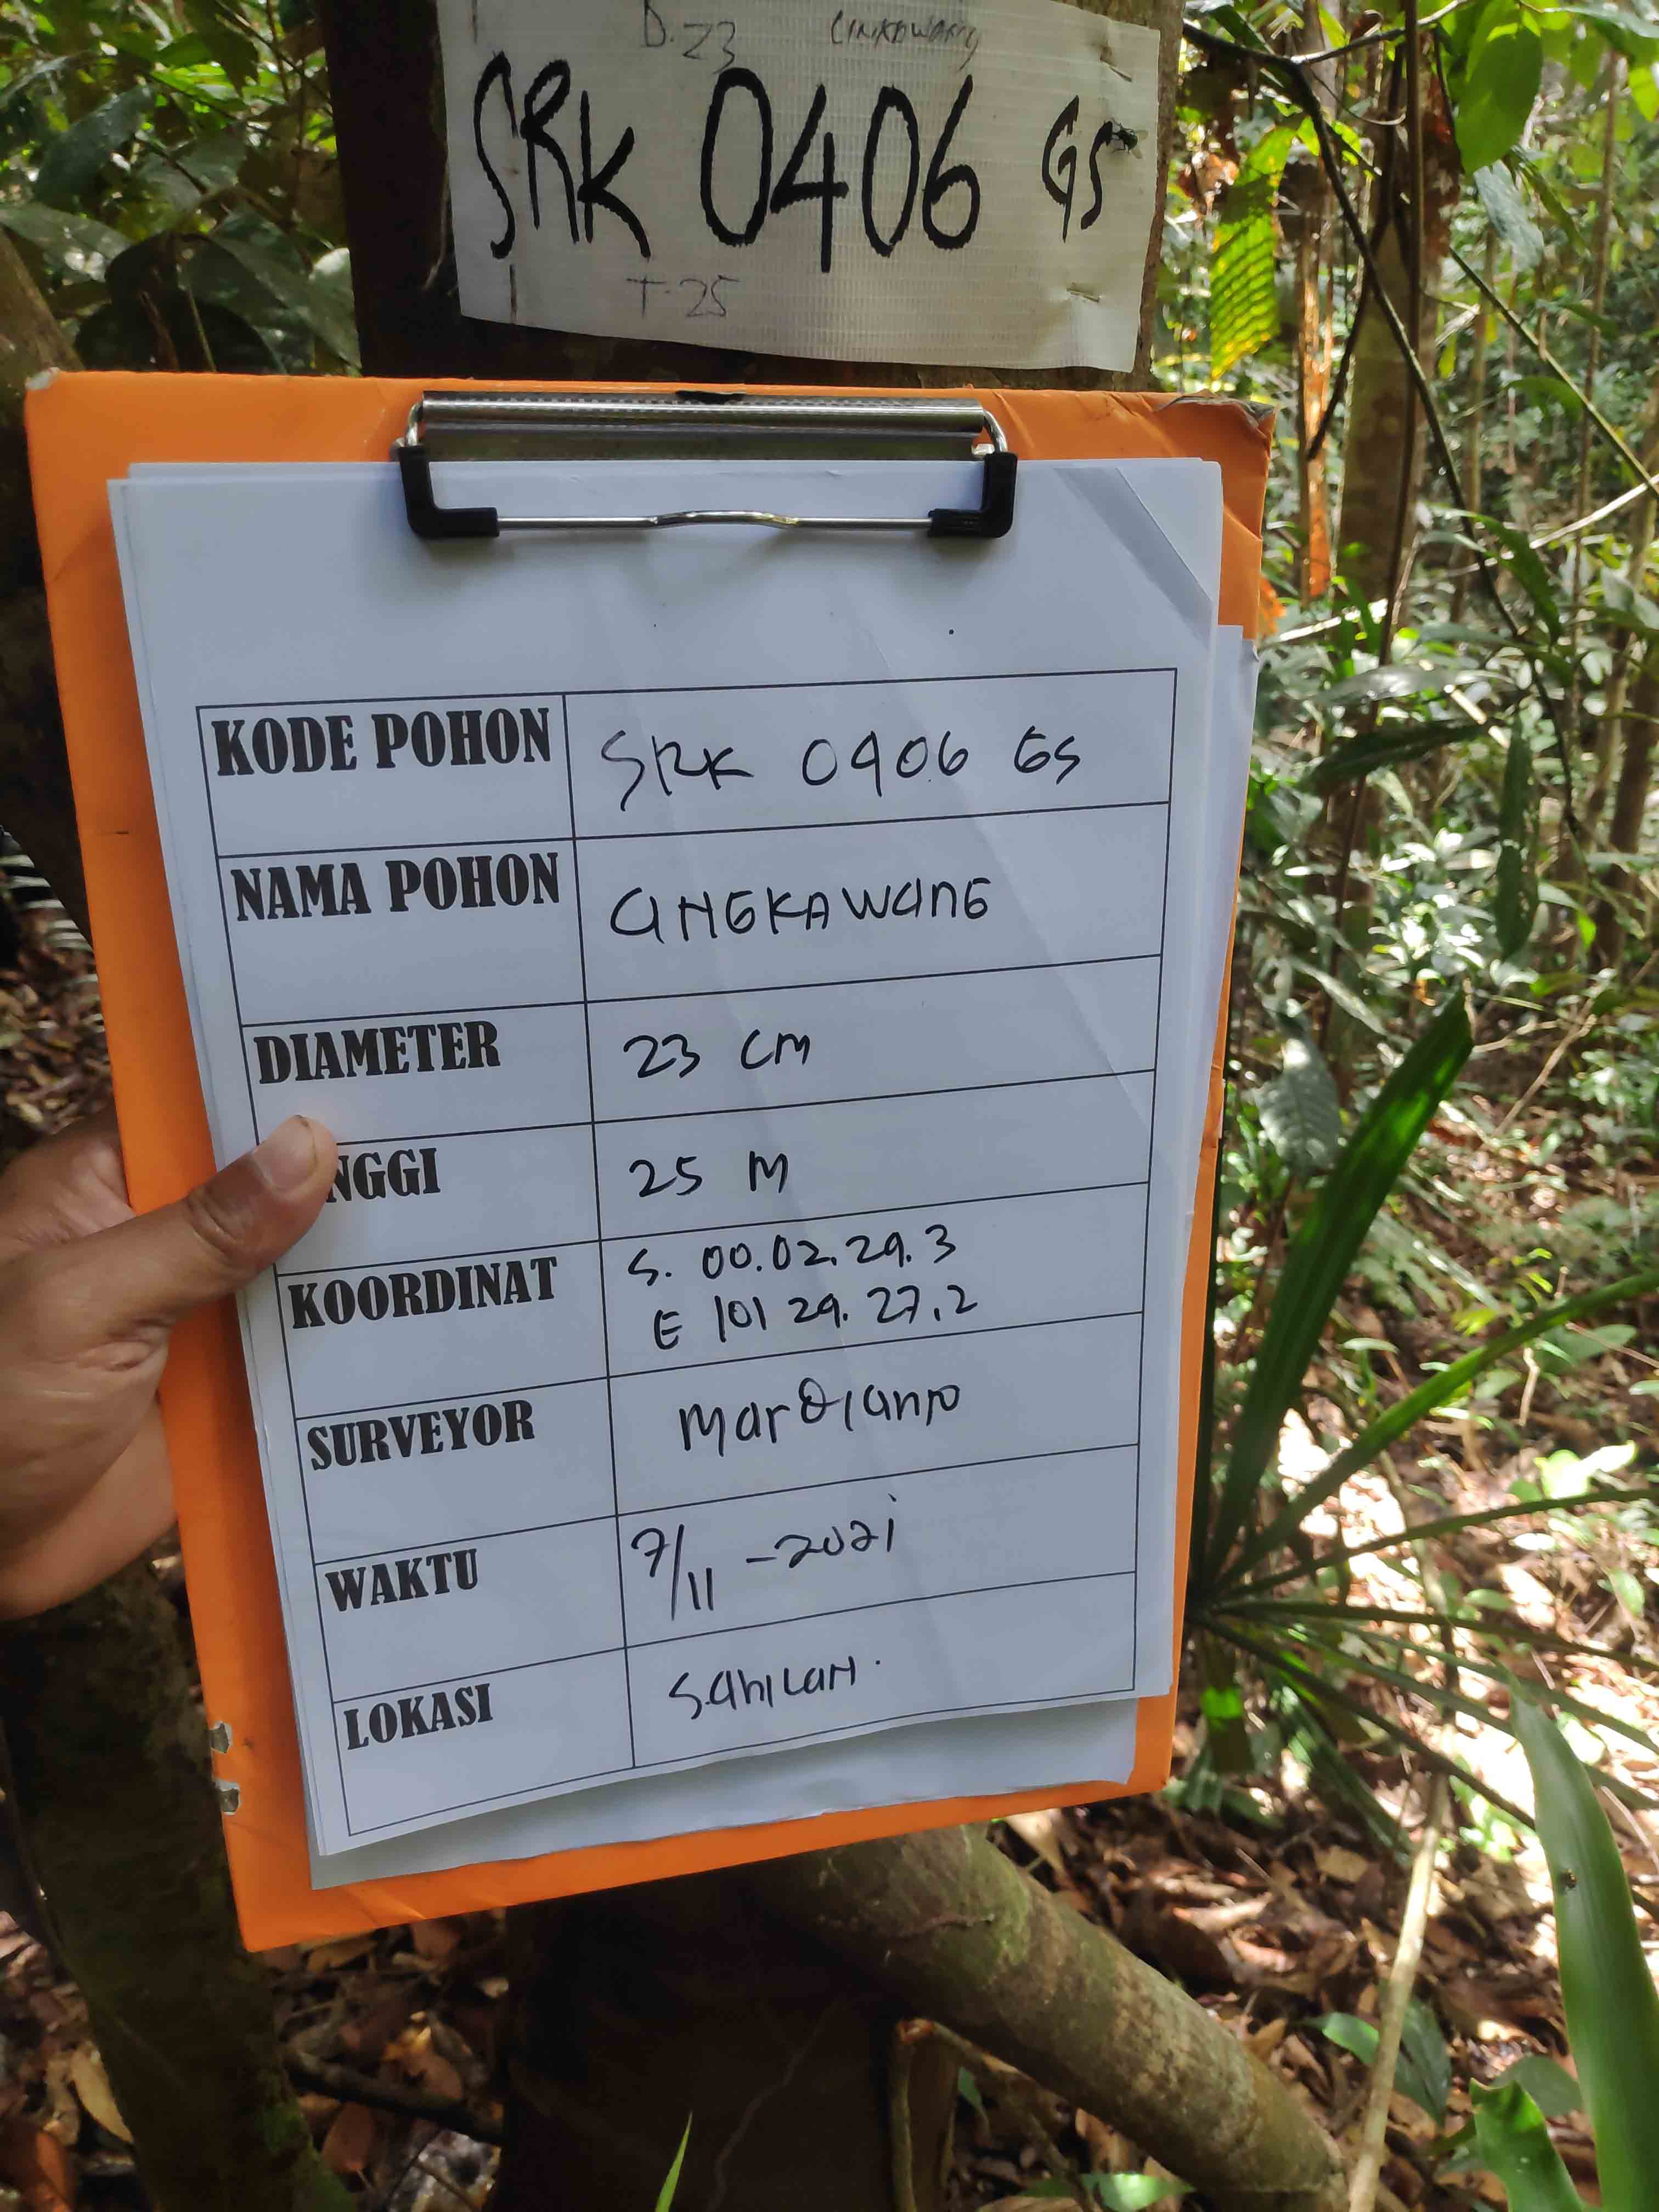 D. 23
SRK 0406 GS
T-25
KODE POHON SRK 0406 GS
NAMA POHON ANGKAWANG
DIAMETER 23 CM
NGGI 25 M
KOORDINAT S. 00.02.29.3
E 101 29. 27.2
SURVEYOR Mardianto
WAKTU 7/11 -2021
LOKASI SAHILAN.